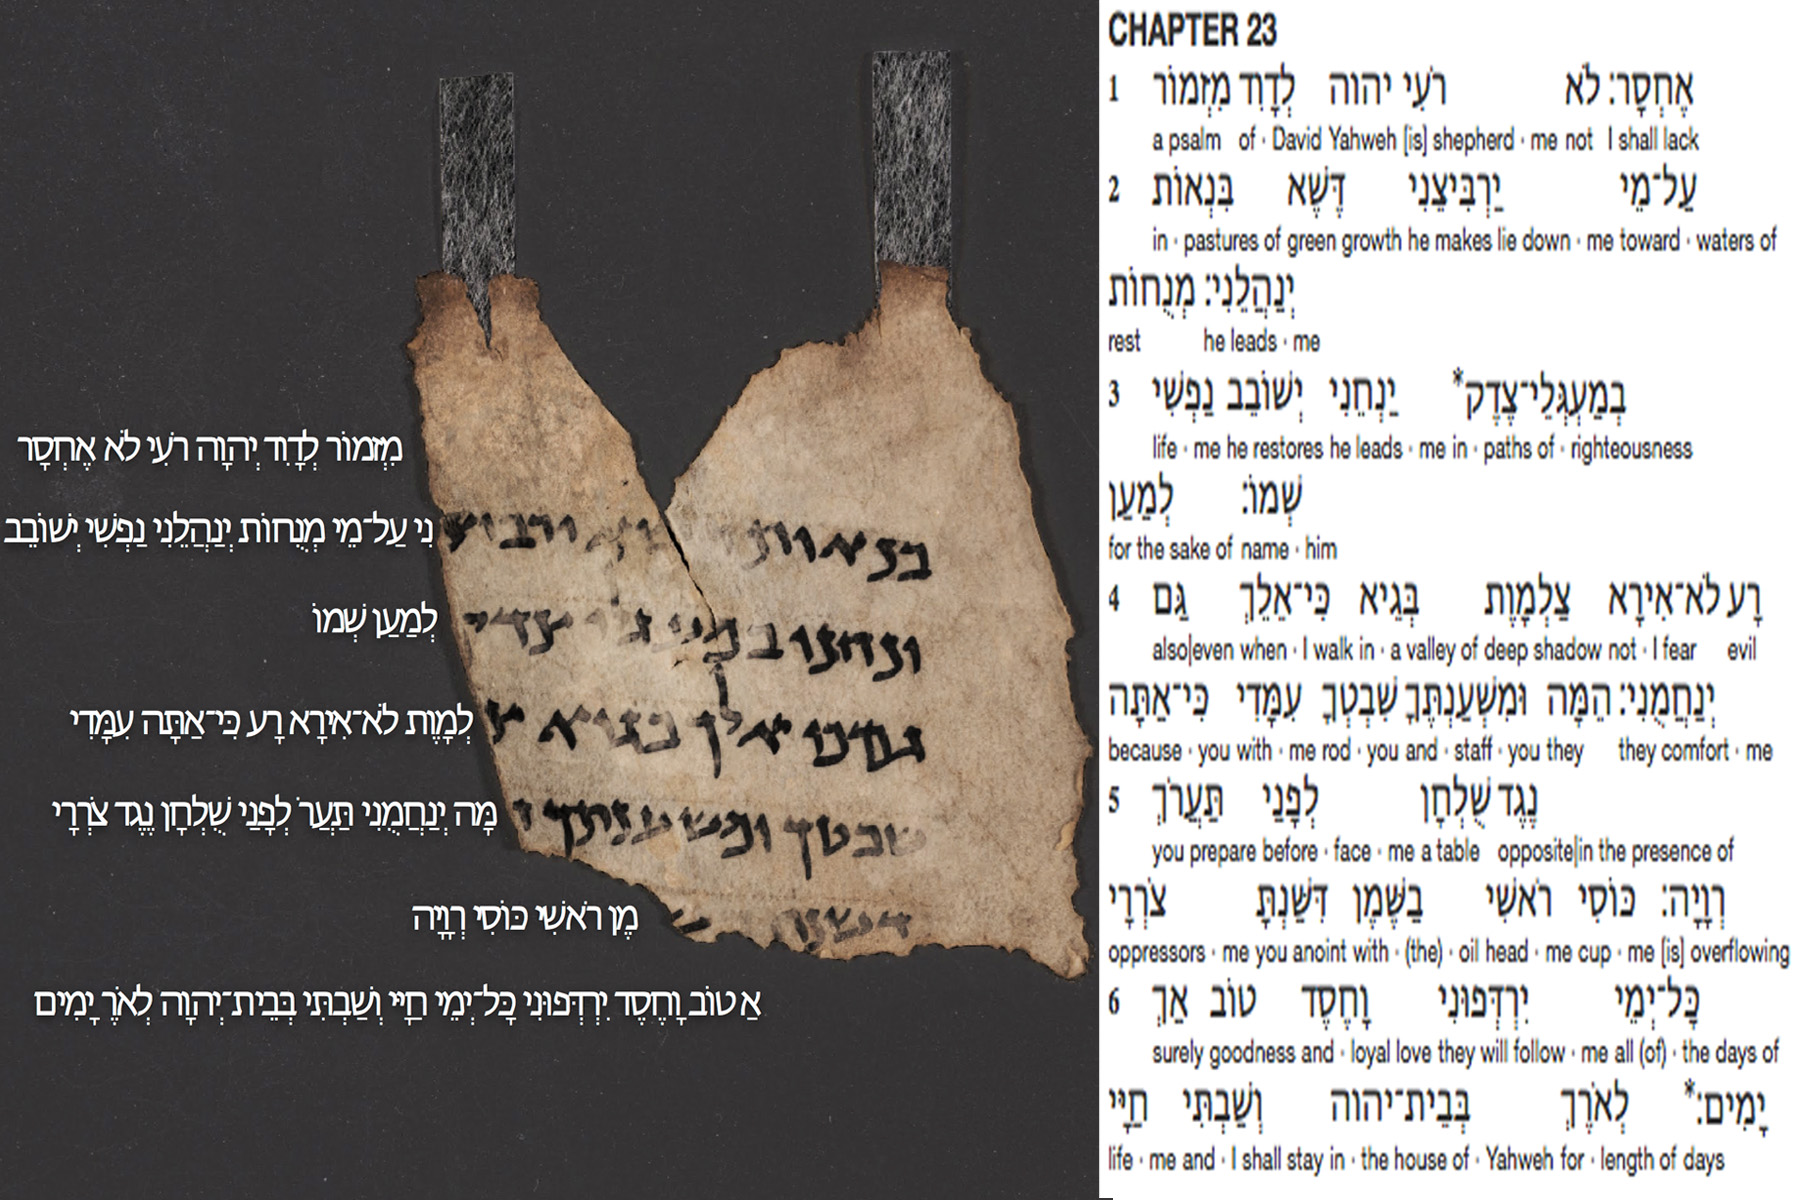 מִזְמוֹר לְדָוִד יְהוָה רֹעִי לֹא אֶחְסָר
בנאות דשא ירביצ
נִי עַל־מֵי מְנֻחוֹת יְנַהֲלֵנִי נַפְשִׁי יְשׁוֹבֵב
ינחני במעגלי צדק
לְמַעַן שְׁמוֹ
גם כי אלך בגיא צ
לְמָוֶת לֹא־אִירָא רָע כִּי־אַתָּה עִמָּדִי
שבטך ומשענתך ה
מָּה יְנַחֲמֻנִי תַּעֲרֹ לְפָנַי שֻׁלְחָן נֶגֶד צֹרְרָי
דשנת
מֶן רֹאשִׁי כּוֹסִי רְוָיָה
אַ טוֹב וָחֶסֶד יִרְדְּפוּנִי כָּל־יְמֵי חַיָּי וְשַׁבְתִּי בְּבֵית־יְהוָה לְאֹרֶ יָמִים
CHAPTER 23
1 מִזְמוֹר לְדָוִד יהוה רֹעִי לֹא אֶחְסָר׃
a psalm of · David Yahweh [is] shepherd · me not I shall lack
2 בִּנְאוֹת דֶּשֶׁא יַרְבִּיצֵנִי עַל־מֵי
in · pastures of green growth he makes lie down · me toward · waters of
מְנֻחוֹת יְנַהֲלֵנִי׃
rest he leads · me
3 נַפְשִׁי יְשׁוֹבֵב יַנְחֵנִי בְמַעְגְּלֵי־צֶדֶק*
life · me he restores he leads · me in · paths of · righteousness
לְמַעַן שְׁמוֹ׃
for the sake of name · him
4 גַּם כִּי־אֵלֵךְ בְּגֵיא צַלְמָוֶת לֹא־אִירָא רָע
also|even when · I walk in · a valley of deep shadow not · I fear evil
כִּי־אַתָּה עִמָּדִי שִׁבְטְךָ וּמִשְׁעַנְתֶּךָ הֵמָּה יְנַחֲמֻנִי׃
because · you with · me rod · you and · staff · you they they comfort · me
5 תַּעֲרֹךְ לְפָנַי שֻׁלְחָן נֶגֶד
you prepare before · face · me a table opposite|in the presence of
צֹרְרָי דִּשַּׁנְתָּ בַשֶּׁמֶן רֹאשִׁי כּוֹסִי רְוָיָה׃
oppressors · me you anoint with · (the) · oil head · me cup · me [is] overflowing
6 אַךְ טוֹב וָחֶסֶד יִרְדְּפוּנִי כָּל־יְמֵי
surely goodness and · loyal love they will follow · me all (of) · the days of
חַיָּי וְשַׁבְתִּי בְּבֵית־יהוה לְאֹרֶךְ יָמִים׃*
life · me and · I shall stay in · the house of · Yahweh for · length of days